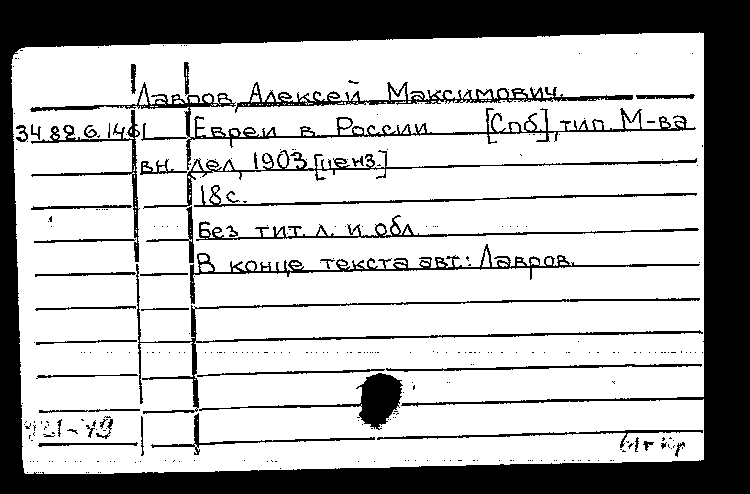 Лавров, Алексей Максимович.
34.82.6.1461 Евреи в России [Спб], тип. М-ва
вн. дел, 1903 [ценз.]
18 с.
Без тит. л. и обл.
В конце текста авт.: Лавров.